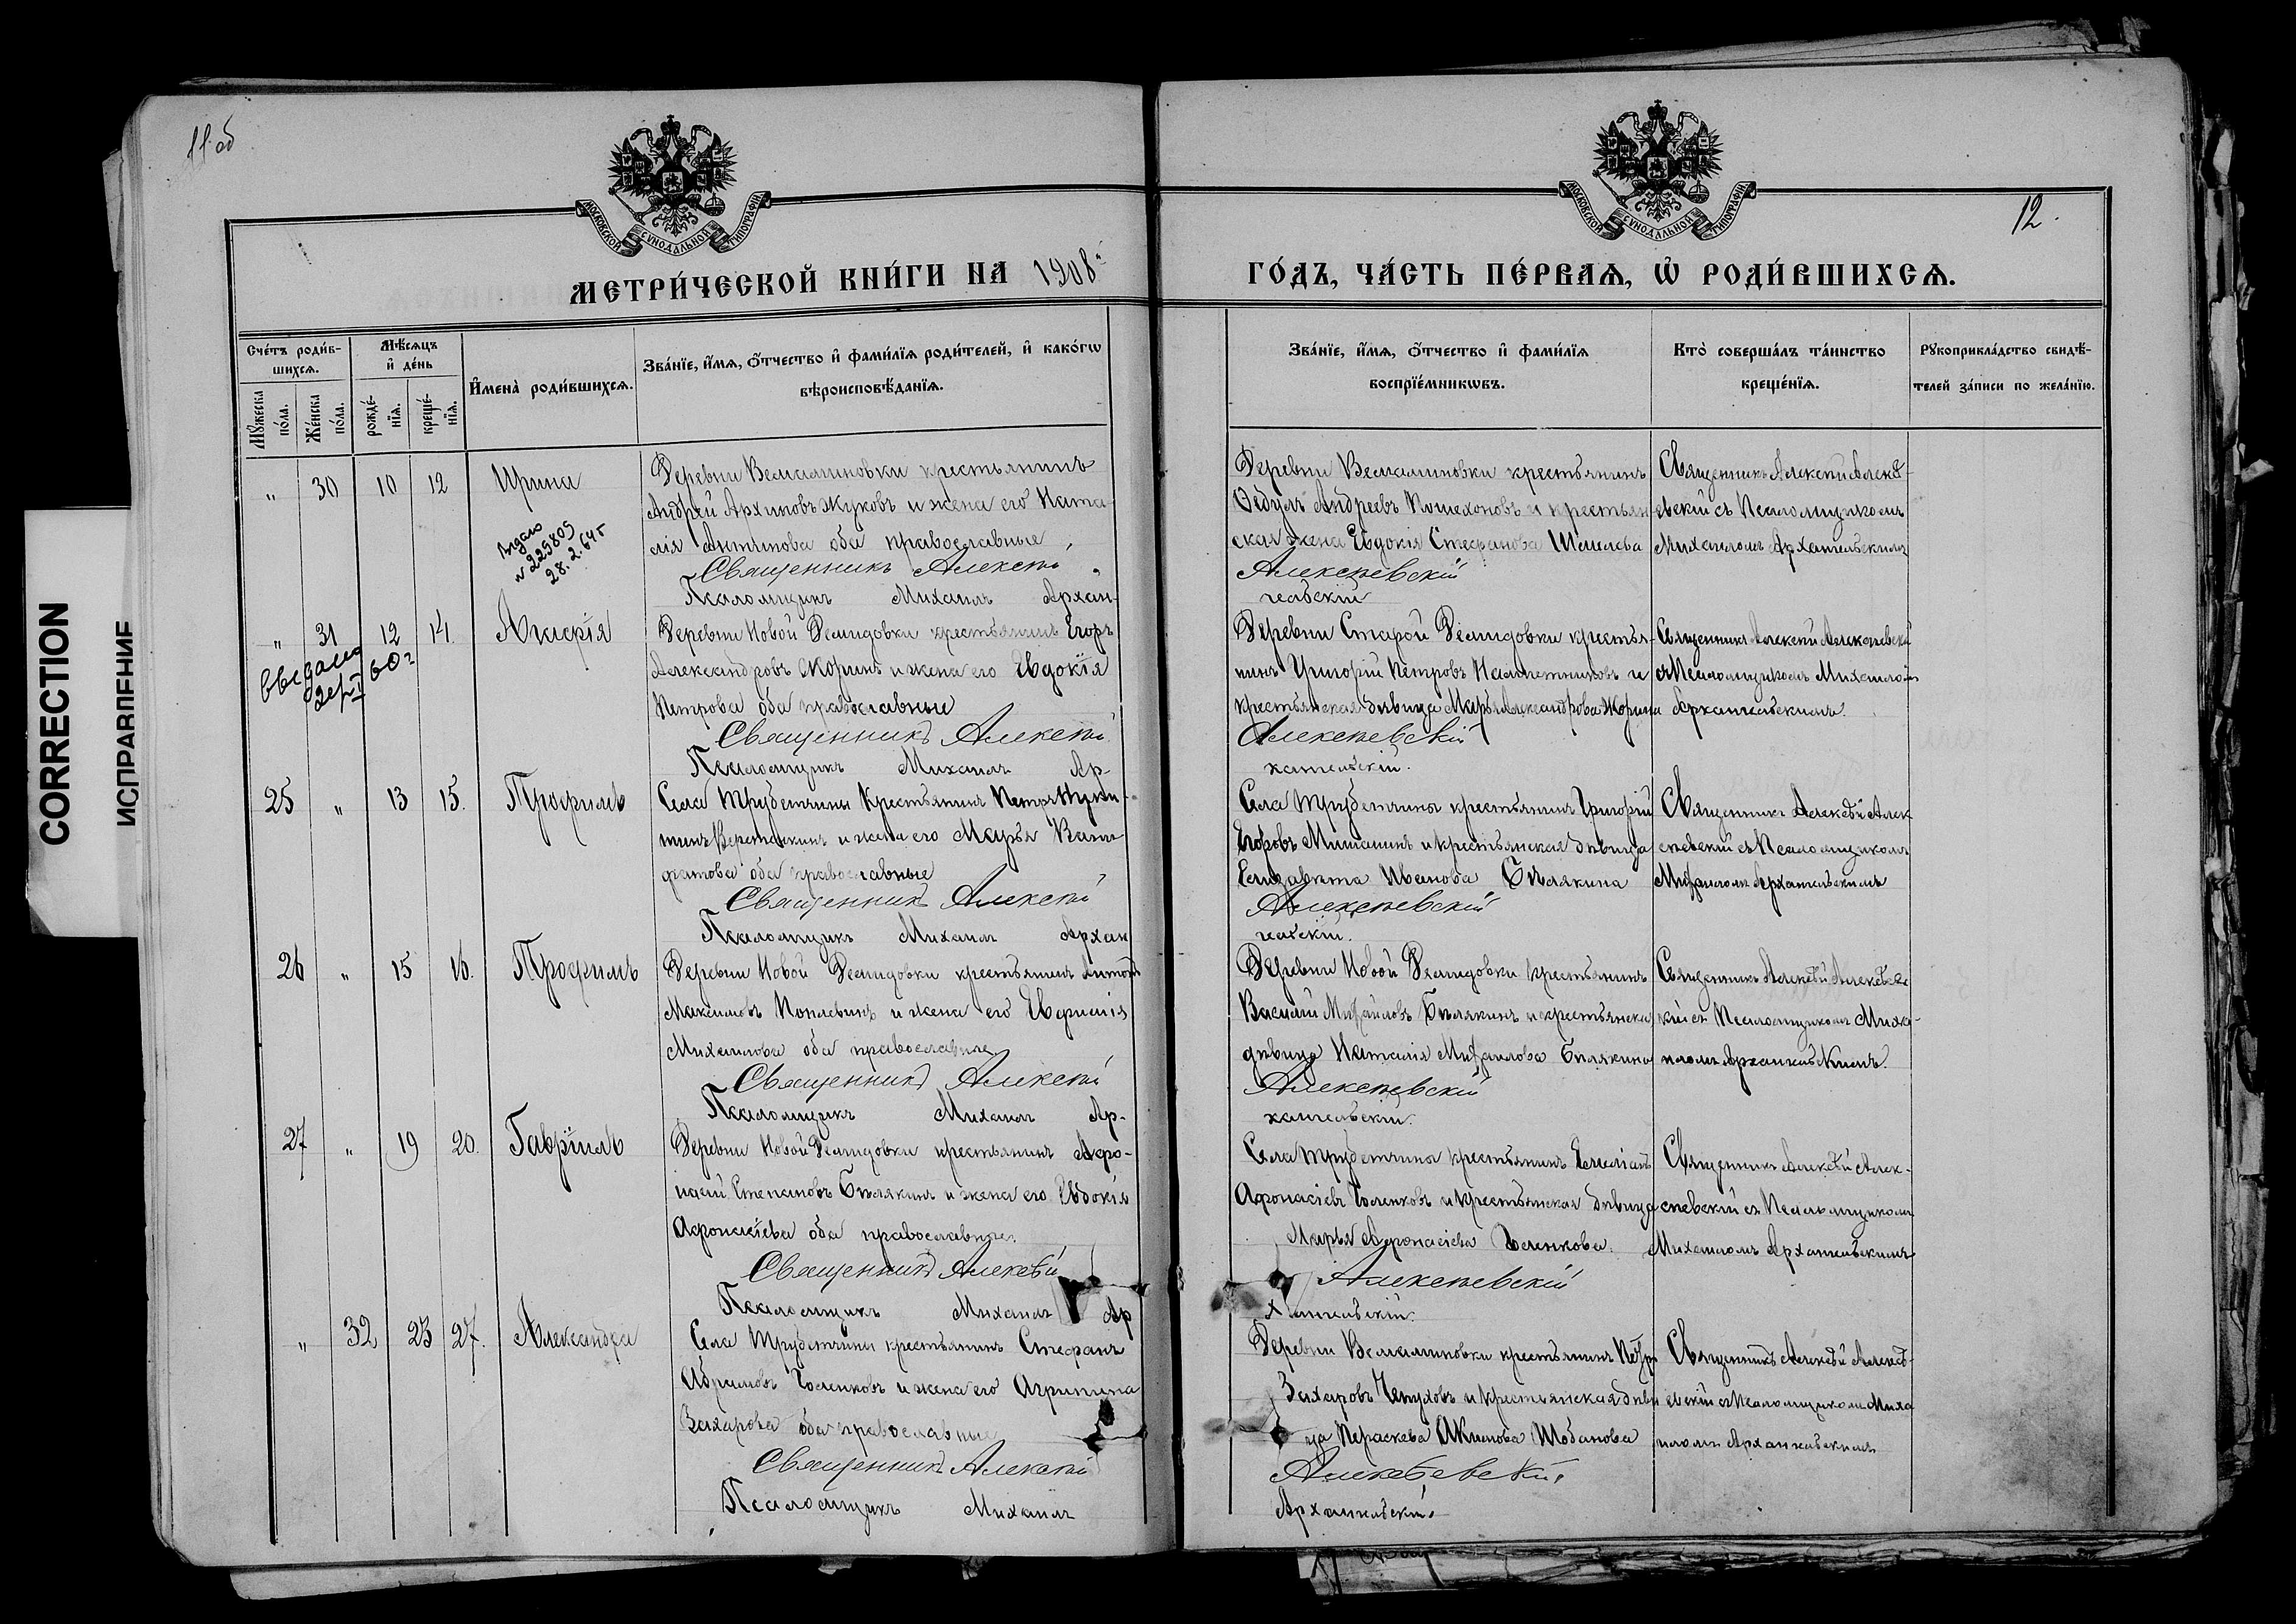 11 об
12.
МОСКОВСКОЙ СѴНОДАЛЬНОЙ ТИПОГРАФІИ
МОСКОВСКОЙ СѴНОДАЛЬНОЙ ТИПОГРАФІИ
МЕТРИ́ЧЕСКОЙ КНИ́ГИ НА 1908й
ГО́ДЪ, ЧА́СТЬ ПЕ́РВАѦ, Ѡ҆ РОДИ́ВШИХСѦ.
Сче́тъ роди́в-
шихсѧ.
Мѹ́жеска по́ла.
Же́нска по́ла.
Мѣ́сѧцъ
и҆ де́нь
рожде́-
нїѧ.
креще́-
нїѧ.
И҆мена̀ роди́вшихсѧ.
Зва́нїе, и҆́мѧ, ѻ҆́тчество и҆ фами́лїѧ роди́телей, и҆ како́гѡ
вѣроисповѣ́данїѧ.
Зва́нїе, и҆́мѧ, ѻ҆́тчество и҆ фами́лїѧ
воспрїе́мникѡвъ.
Кто̀ соверша́лъ та́инство
креще́нїѧ.
Рѹкоприкла́дство свидѣ́-
телей за́писи по жела́нїю.
" 30 10 12 Ирина
Выдано
№ 225809
28.2.64 г
Деревни Вельяминовки крестьянинъ
Андрей Архиповъ Жуковъ и жена его Ната-
лія Антипова оба православные
Священникъ Алексѣй
Псаломщикъ Михаилъ Архан-
Деревни Вельяминовки крестьянинъ
Ѳедулъ Андреевъ Пошехоновъ и крестьян-
ская жена Евдокія Стефанова
Алексѣевскій
гельскій
Священникъ Алексѣй Алексѣ-
евскій съ Псаломщикомъ
Михаиломъ Архангельскимъ
" 31 12 14. Агафія
выдано
60 г
Деревни Новой Демидовки крестьянинъ Егоръ
Александровъ Жоринъ и жена его Евдокія
Петрова оба православные
Священникъ Алексѣй
Псаломщикъ Михаилъ Ар-
Деревни Старой Демидовки крестья-
нинъ Григорій Петровъ и
крестьянская дѣвица Марья Александрова Жорина
Алексѣевскій
хангельскій.
Священникъ Алексѣй Алексѣевскій
съ Псаломщикомъ Михаиломъ
Архангельскимъ.
25 " 13 15. Трофимъ
Села Трубетчины крестьянинъ Петръ Ники-
тинъ и жена его Марья
оба православные
Священникъ Алексѣй
Псаломщикъ Михаилъ Архан
Села Трубетчины крестьянинъ Григорій
Егоровъ Митшинъ и крестьянская дѣвица
Елизавета Иванова Бѣлякина
Алексѣевскій
гельскій.
Священникъ Алексѣй Алек
сѣевскій съ Псаломщикомъ
Михаиломъ Архангельскимъ
26 " 15 16. Трофимъ
Деревни Новой Демидовки крестьянинъ Антонъ
Максимовъ и жена его Евфимія
Михаилова оба православные.
Священникъ Алексѣй
Псаломщикъ Михаилъ Ар-
Деревни Новой Демидовки крестьянинъ
Василій Михайловъ Бѣлякинъ и крестьянска
дѣвица Наталія Михаилова Бѣлякина
Алексѣевскій
хангельскій.
Священникъ Алексѣй Алексѣевс
кій съ Псаломщикомъ Миха-
иломъ Архангельскимъ.
27 " 19 20. Гавріилъ
Деревни Новой Демидовки крестьянинъ Афо-
насій Степановъ Бѣлякинъ и жена его Евдокія
Афонасіева оба православные.
Священникъ Алексѣй
Псаломщикъ Михаилъ Ар
Села Трубетчины крестьянинъ Емеліанъ
Афонасіевъ Голенковъ и крестьянская дѣвица
Марья Афонасіева Голенкова.
Алексѣевскій
хангельскій.
Священникъ Алексѣй Алек-
сѣевскій съ Псаломщикомъ
Михаиломъ Архангельскимъ
" 32 23 27. Александра
Села Трубетчины крестьянинъ Стефанъ
Абрамовъ Голенковъ и жена его Агрипина
Захарова оба православные
Священникъ Алексѣй
Псаломщикъ Михаилъ
Деревни Вельяминовки крестьянинъ Петръ
Захаровъ и крестьянская дѣви
ца Параскева Акимова Шобанова
Алексѣевскій.
Архангельскій.
Священникъ Алексѣй Алексѣ-
евскій съ Псаломщикомъ Миха
иломъ Архангельскимъ
CORRECTION
ИСПРАВЛЕНИЕ